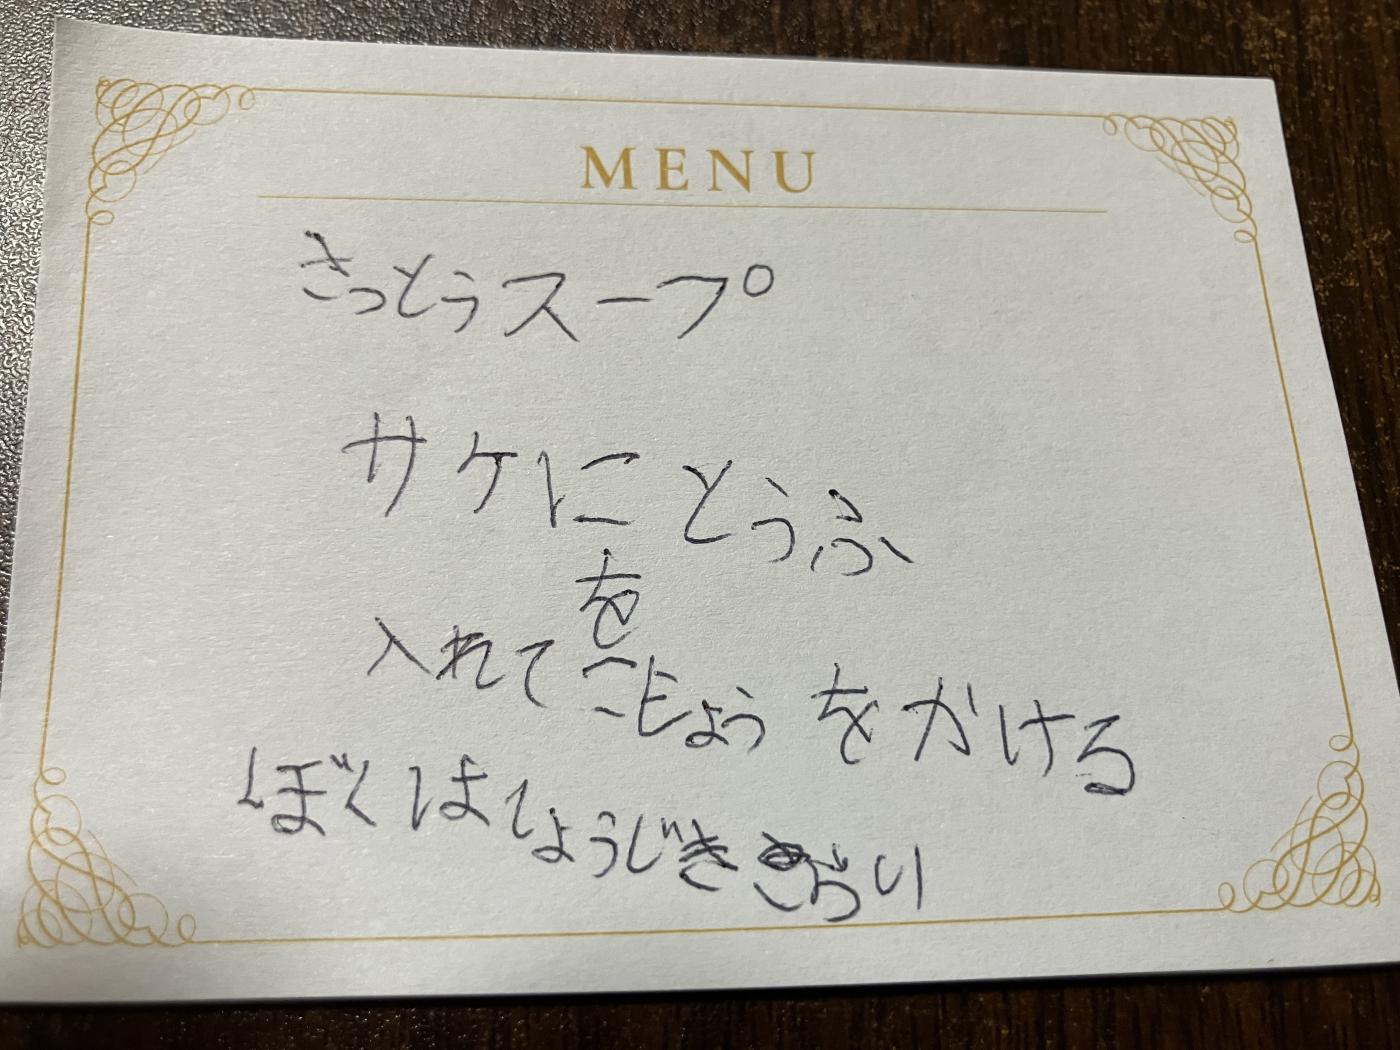 MENU
さっとうスープ
サケにとうふ
を
入れてこしょうをかける
ぼくはしょうじききらい